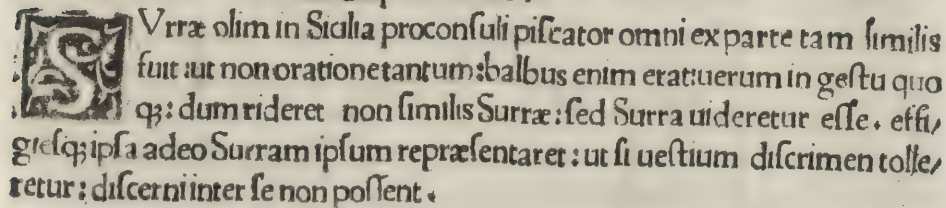 SVrræ olim in Sicilia proconſuli piſcator omni ex parte tam ſimilis
fuit :ut non oratione tantum :balbus enim erat:uerum in geſtu quo
qꝫ: dum rideret non ſimilis Surræ : ſed Surra uideretur eſſe. effi/
gieſqꝫ ipſa adeo Surram ipſum repræſentaret : ut ſi ueſtium diſcrimen tolle/
retur : diſcerni inter ſe non poſſent.